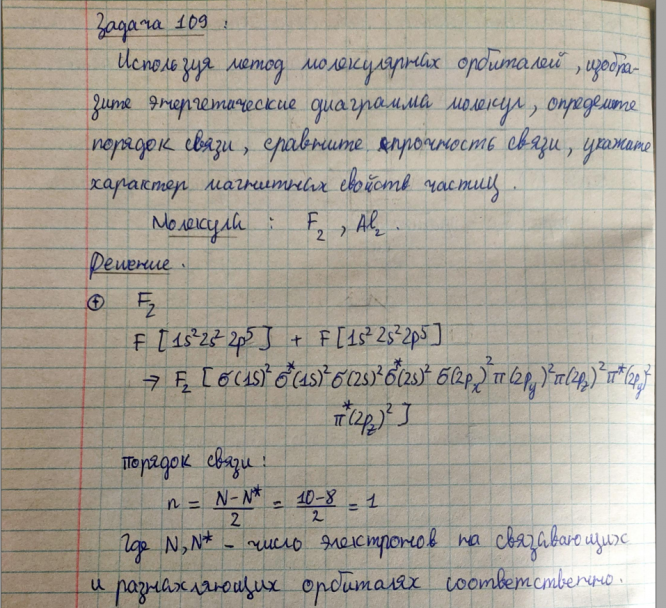 Задача 109 :
Используя метод молекулярных орбиталей, изобра-
зите энергетические диаграмма молекул, определите
порядок связи, сравните прочность связи, укажите
характер магнитных свойств частиц.
Молекула : F₂, Al₂.
Решение.
+ F₂
F [1s² 2s² 2p⁵] + F [1s² 2s² 2p⁵]
→ F₂ [σ(1s)² σ*(1s)² σ(2s)² σ*(2s)² σ(2pₓ)² π(2p_y)² π(2p_z)² π*(2p_y)²
π*(2p_z)²]
порядок связи :
n = (N-N*)/2 = (10-8)/2 = 1
Где N, N* - число электронов на связавающих
и разнахляющих орбиталях соответственно.